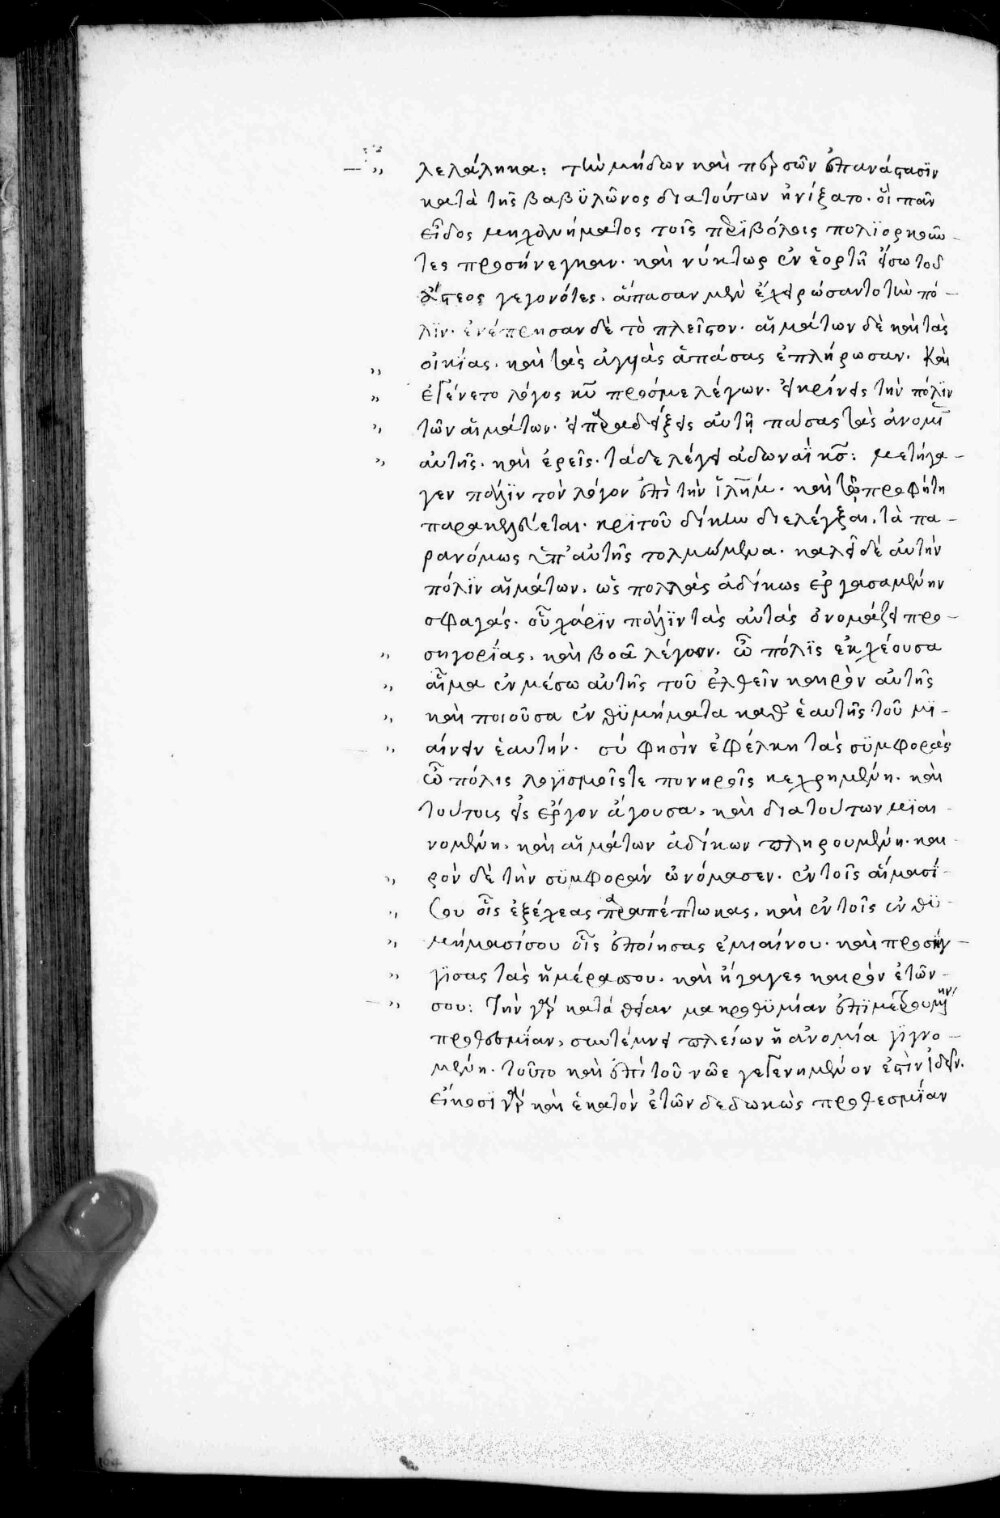 λελάληκα: τὴν μήδων καὶ περσῶν ἐπανάστασϊν
κατὰ τῆς βαβϋλῶνος διατούτων ἠνίξατο· οἳ πᾶν
εἶδος μηχανήματος τοῖς περϊβόλοις πολϊορκοῦν
τες προσήνεγκαν· καὶ νύκτωρ ἐν ἑορτῆ εἴσω τοῦ
ἄστεος γεγονότες, ἅπασαν μὲν ἐχειρώσαντο τὴν πό-
λϊν· ἐνέπρησαν δὲ τὸ πλεῖστον· αἱμάτων δὲ καὶ τὰς
οἰκίας, καὶ τὰς ἀγυιὰς ἁπάσας ἐπλήρωσαν· Καὶ
ἐγένετο λόγος κυ προσμε λέγων· εἰ κρίνεις τὴν πόλϊν
τῶν αἱμάτων· εἰ παραδείξεις αὐτῆ πάσας τὰς ἀνομί
αὐτῆς· καὶ ἐρεῖς· τάδε λέγει ἀδωναῒ κς: μετήγα-
γεν πάλϊν τὸν λόγον ἐπὶ τὴν ϊλημ· καὶ τῶ προφήτη
παρακελεύεται· κρϊτοῦ δίκην διελέγξαι, τὰ πα-
ρανόμως ὑπ' αὐτῆς τολμώμενα· καλεῖ δὲ αὐτὴν
πόλϊν αἱμάτων, ὡς πολλὰς ἀδίκως ἐργασαμένην
σφαγάς· οὗ χάρϊν πάλϊν τὰς αὐτὰς ὀνομάζει προ-
σηγορΐας, καὶ βοᾶ λέγων· ὦ πόλϊς ἐκχέουσα
αἷμα ἐν μέσω αὐτῆς τοῦ ἐλθεῖν καιρὸν αὐτῆς
καὶ ποιοῦσα ἐνθϋμήματα καθ' ἑαυτῆς τοῦ μϊ-
αίνειν ἑαυτήν· σύ φησὶν ἐφέλκη τὰς σϋμφορὰς
ὦ πόλις λογϊσμοῖς τε πονηροῖς κεχρημένη· καὶ
τούτους εἰς ἔργον ἄγουσα, καὶ διατούτων μϊαι-
νομένη, καὶ αἱμάτων ἀδίκων πληρουμένη· και-
ρὸν δὲ τὴν σϋμφορὰν ὠνόμασεν· ἐν τοῖς αἵμασί-
σου οἷς ἐξέχεας παραπέπτωκας, καὶ ἐν τοῖς ἐνθϋ-
μήμασίσου οἷς ἐποίησας ἐμιαίνου· καὶ προσήγ-
γϊσας τὰς ἡμέρασσου· καὶ ἤγαγες καιρὸν ἐτῶν-
σου: Τὴν γὰρ κατὰ θείαν μακροθϋμίαν ἐπϊμετρουμένην
προθεσμΐαν, συντέμνει πλείων ἡ ἀνομία γϊγνο-
μένη· τοῦτο καὶ ἐπὶ τοῦ νῶε γεγενημένον ἐστὶν ἰδεῖν·
εἴκοσι γὰρ καὶ ἑκατὸν ἐτῶν δεδωκὼς προθεσμΐαν